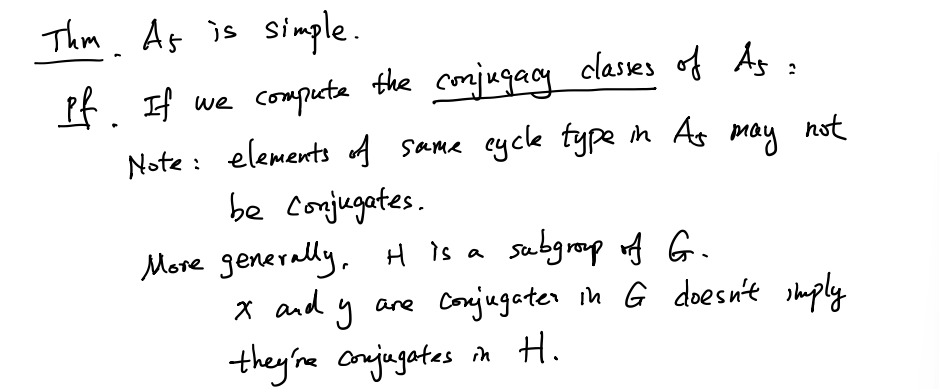 Thm. A5 is simple.
Pf. If we compute the conjugacy classes of A5:
Note: elements of same cycle type in A5 may not
be conjugates.
More generally, H is a subgroup of G.
x and y are conjugates in G doesn't imply
they're conjugates in H.